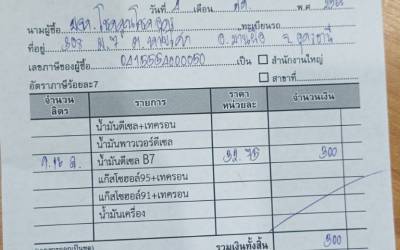 วันที่ 1 เดือน พ.ศ. 256
นามผู้ซื้อ หจก. โชค ทะเบียนรถ
ที่อยู่ 303 ม. 7 ต. อ. บ้านผือ จ. อุดรธานี
เลขภาษีของผู้ซื้อ 0415554000050 เป็น ☐ สำนักงานใหญ่
อัตราภาษีร้อยละ7 ☐ สาขาที่
จำนวนลิตร รายการ ราคาหน่วยละ จำนวนเงิน
น้ำมันดีเซล+เทครอน
น้ำมันพาวเวอร์ดีเซล
9.16 ล. น้ำมันดีเซล B7 32.75 300
แก๊สโซฮอล์95+เทครอน
แก๊สโซฮอล์91+เทครอน
น้ำมันเครื่อง
รวมเงินทั้งสิ้น 300